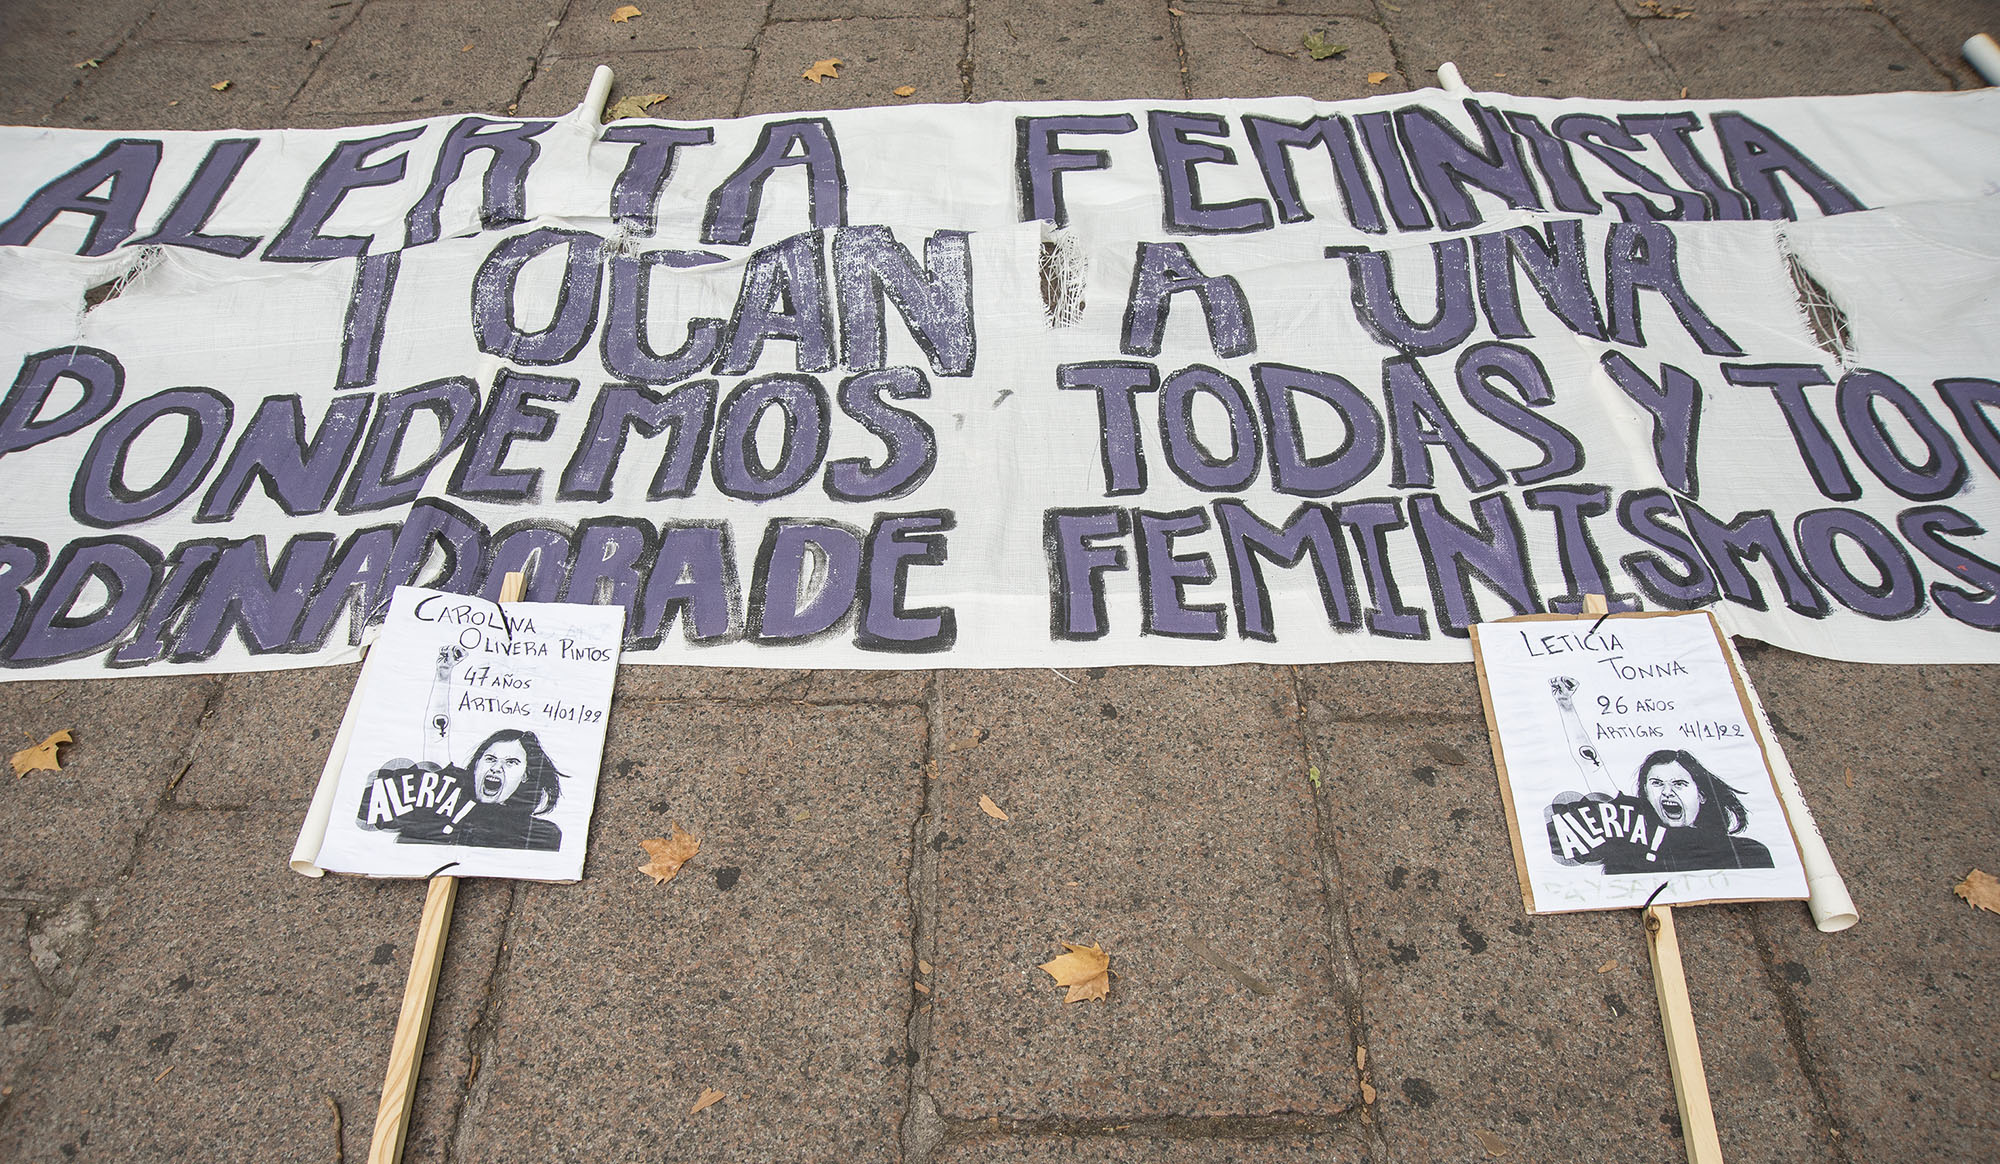 ALERTA FEMINISTA
TOCAN A UNA
PONDEMOS TODAS Y TOD
RDINADORA DE FEMINISMOS
CAROLINA
OLIVERA PINTOS
47 AÑOS
ARTIGAS 4/01/22
ALERTA!
LETICIA
TONNA
26 AÑOS
ARTIGAS 14/1/22
ALERTA!
PAYSANDU